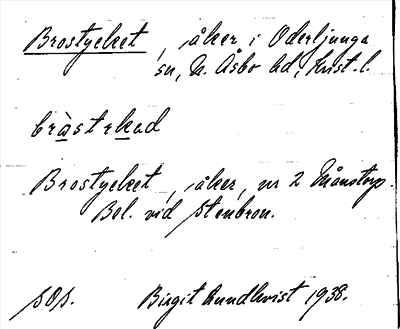 Brostycket, åker i Oderljunga
sn, N. Åsbo hd, Krist. l.
bràstɛkad
Brostycket, åker, nr 2 Månstorp.
Bel. vid Stenbron.
s.o.s. Birgit Rundkvist 1938.